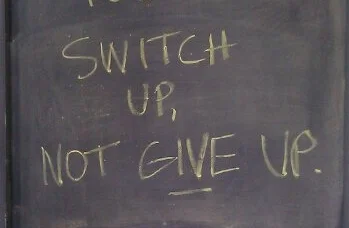 SWITCH
UP,
NOT GIVE UP.